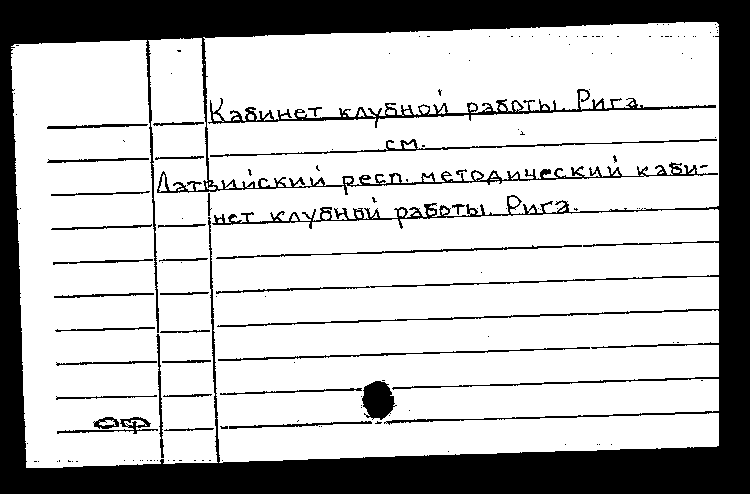 Кабинет клубной работы. Рига.
см.
Латвийский респ. методический каби-
нет клубной работы. Рига.
оф